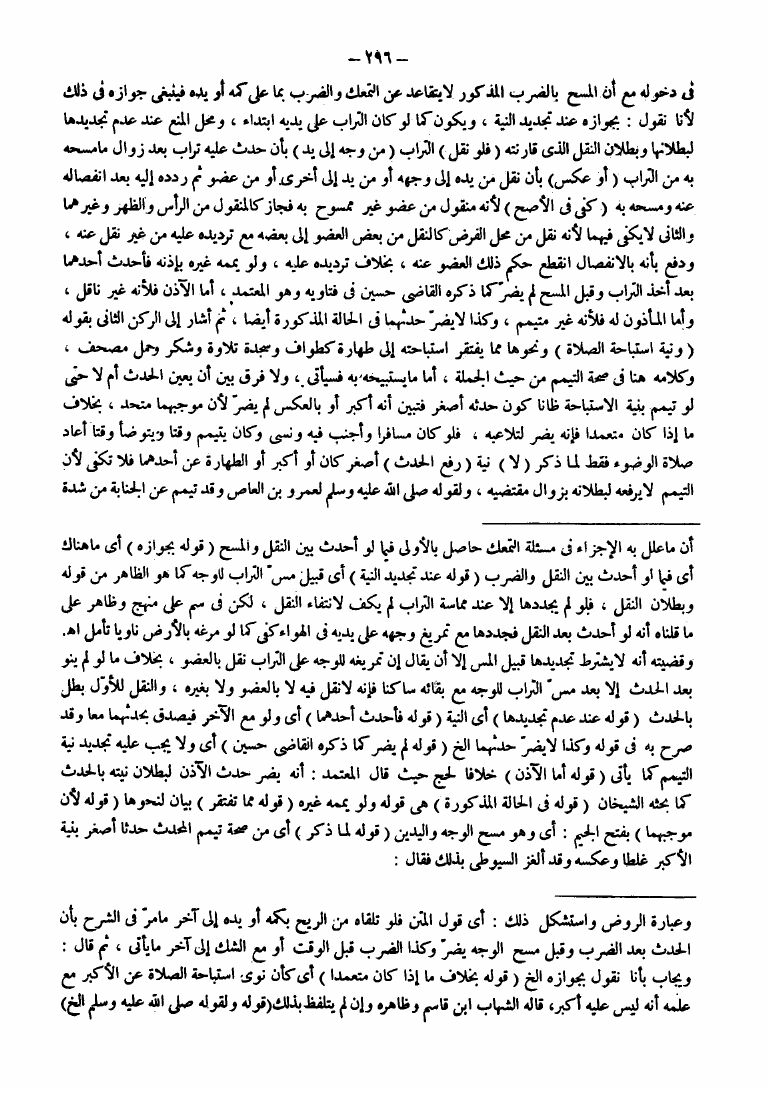 – ٢٩٦ –
فى دخوله مع أن المسح بالضرب المذكور لايتقاعد عن التمعك والضرب بما على كمه أو يده فينبغى جوازه فى ذلك
لأنا نقول : بجوازه عند تجديد النية ، ويكون كما لو كان التراب على يديه ابتداء ، ومحل المنع عند عدم تجديدها
لبطلانها وبطلان النقل الذى قارنته ( فلو نقل ) التراب ( من وجه إلى يد ) بأن حدث عليه تراب بعد زوال مامسحه
به من التراب ( أو عكس) بأن نقل من يده إلى وجهه أو من يد إلى أخرى أو من عضو ثم ردده إليه بعد انفصاله
عنه ومسحه به ( كفى فى الأصح ) لأنه منقول من عضو غير ممسوح به فجاز كالمنقول من الرأس والظهر وغيرهما
والثانى لايكفى فيهما لأنه نقل من محل الفرض كالنقل من بعض العضو إلى بعضه مع ترديده عليه من غير نقل عنه ،
ودفع بأنه بالانفصال انقطع حكم ذلك العضو عنه ، بخلاف ترديده عليه ، ولو يممه غيره بإذنه فأحدث أحدهما
بعد أخذ التراب وقبل المسح لم يضرّ كما ذكره القاضى حسين فى فتاويه وهو المعتمد ، أما الآذن فلأنه غير ناقل ،
وأما المأذون له فلأنه غير متيمم ، وكذا لايضرّ حدثهما فى الحالة المذكورة أيضا ، ثم أشار إلى الركن الثانى بقوله
( ونية استباحة الصلاة ) ونحوها مما يفتقر استباحته إلى طهارة كطواف وسجدة تلاوة وشكر وحمل مصحف ،
وكلامه هنا فى صحة التيمم من حيث الجملة ، أما مايستبيحه به فسيأتى ، ولا فرق بين أن يعين الحدث أم لا حتى
لو تيمم بنية الاستباحة ظانا كون حدثه أصغر فتبين أنه أكبر أو بالعكس لم يضرّ لأن موجبهما متحد ، بخلاف
ما إذا كان متعمدا فإنه يضر لتلاعبه ، فلو كان مسافرا وأجنب فيه ونسى وكان يتيمم وقتا ويتوضأ وقتا أعاد
صلاة الوضوء فقط لما ذكر ( لا ) نية ( رفع الحدث ) أصغر كان أو أكبر أو الطهارة عن أحدهما فلا تكفى لأن
التيمم لايرفعه لبطلانه بزوال مقتضيه ، ولقوله صلى الله عليه وسلم لعمرو بن العاص وقد تيمم عن الجنابة من شدة
أن ماعلل به الإجزاء فى مسئلة التمعك حاصل بالأولى فيما لو أحدث بين النقل والمسح ( قوله بجوازه ) أى ماهناك
أى فيما لو أحدث بين النقل والضرب ( قوله عند تجديد النية ) أى قبيل مسّ التراب للوجه كما هو الظاهر من قوله
وبطلان النقل ، فلو لم يجددها إلا عند مماسة التراب لم يكف لانتفاء النقل ، لكن فى سم على منهج وظاهر على
ما قلناه أنه لو أحدث بعد النقل فجددها مع تمريغ وجهه على يديه فى الهواء كفى كما لو مرغه بالأرض ناويا تأمل اهـ.
وقضيته أنه لايشترط تجديدها قبيل المس إلا أن يقال إن تمريغه للوجه على التراب نقل بالعضو ، بخلاف ما لو لم ينو
بعد الحدث إلا بعد مسّ التراب للوجه مع بقائه ساكنا فإنه لانقل فيه لا بالعضو ولا بغيره ، والنقل للأوّل بطل
بالحدث ( قوله عند عدم تجديدها ) أى النية ( قوله فأحدث أحدهما ) أى ولو مع الآخر فيصدق بحدثهما معا وقد
صرح به فى قوله وكذا لايضرّ حدثهما الخ ( قوله لم يضر كما ذكره القاضى حسين ) أى ولا يجب عليه تجديد نية
التيمم كما يأتى ( قوله أما الآذن ) خلافا لحج حيث قال المعتمد : أنه يضر حدث الآذن لبطلان نيته بالحدث
كما بحثه الشيخان ( قوله فى الحالة المذكورة ) هى قوله ولو يممه غيره ( قوله مما تفتقر ) بيان لنحوها ( قوله لأن
موجبهما ) بفتح الجيم : أى وهو مسح الوجه واليدين ( قوله لما ذكر ) أى من صحة تيمم المحدث حدثا أصغر بنية
الأكبر غلطا وعكسه وقد ألغز السيوطى بذلك فقال :
وعبارة الروض واستشكل ذلك : أى قول المتن فلو تلقاه من الريح بكمه أو يده إلى آخر مامرّ فى الشرح بأن
الحدث بعد الضرب وقبل مسح الوجه يضرّ وكذا الضرب قبل الوقت أو مع الشك إلى آخر مايأتى ، ثم قال :
ويجاب بأنا نقول بجوازه الخ ( قوله بخلاف ما إذا كان متعمدا ) أى كأن نوى استباحة الصلاة عن الأكبر مع
علمه أنه ليس عليه أكبر، قاله الشهاب ابن قاسم وظاهره وإن لم يتلفظ بذلك (قوله ولقوله صلى الله عليه وسلم الخ)